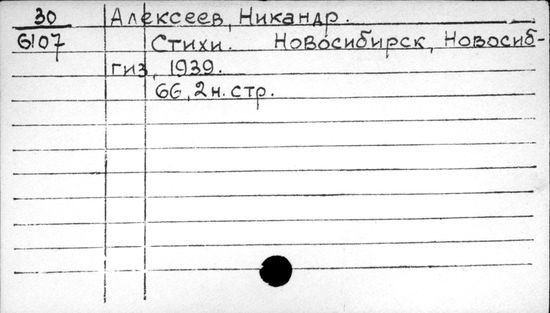 30 Алексеев, Никандр.
6107 Стихи. Новосибирск, Новосиб-
гиз, 1939.
66, 2 н. стр.